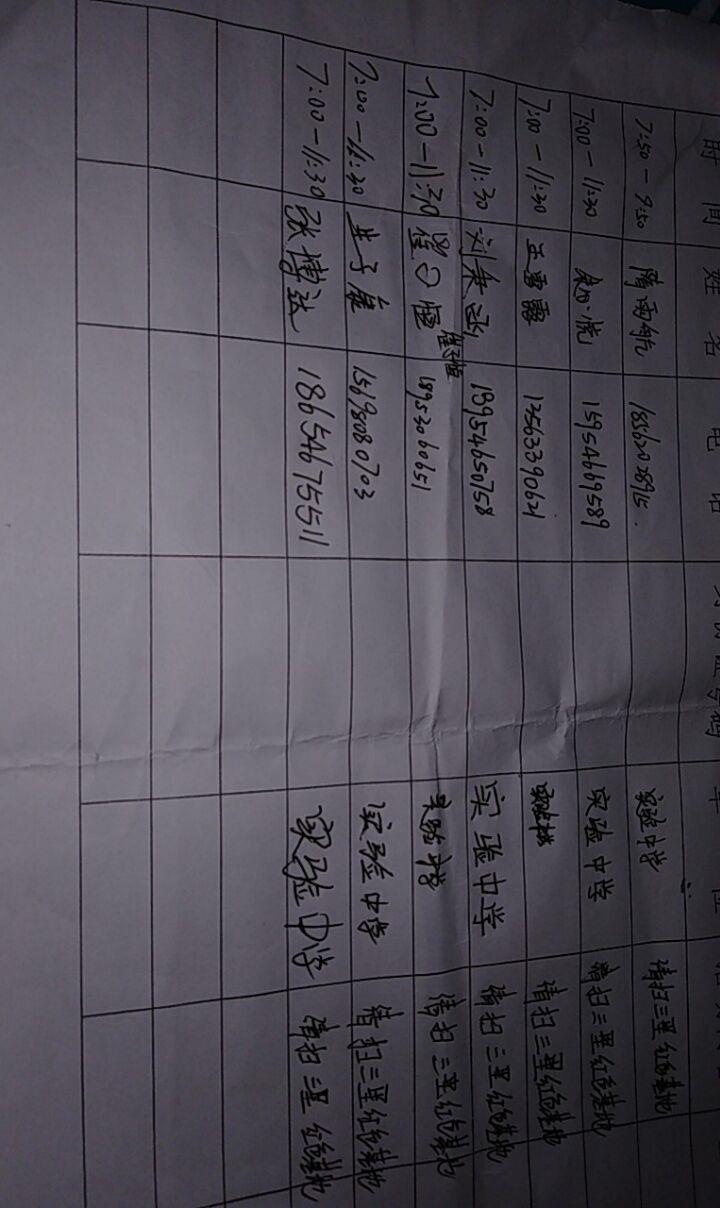 时间 姓名 电 单位
7:50-9:50 隋雨航 实验中学 清扫三里红色基地
7:00-11:30 15954669589 实验中学 清扫三里红色基地
7:00-11:30 王雪露 13563390621 实验中学 清扫三里红色基地
7:00-11:30 刘美函 18954650758 实验中学 清扫三里红色基地
7:00-11:30 18953060651 实验中学 清扫三里红色基地
7:00-11:30 15698080703 实验中学 清扫三里红色基地
7:00-11:30 张博达 18654675511 实验中学 清扫三里红色基地